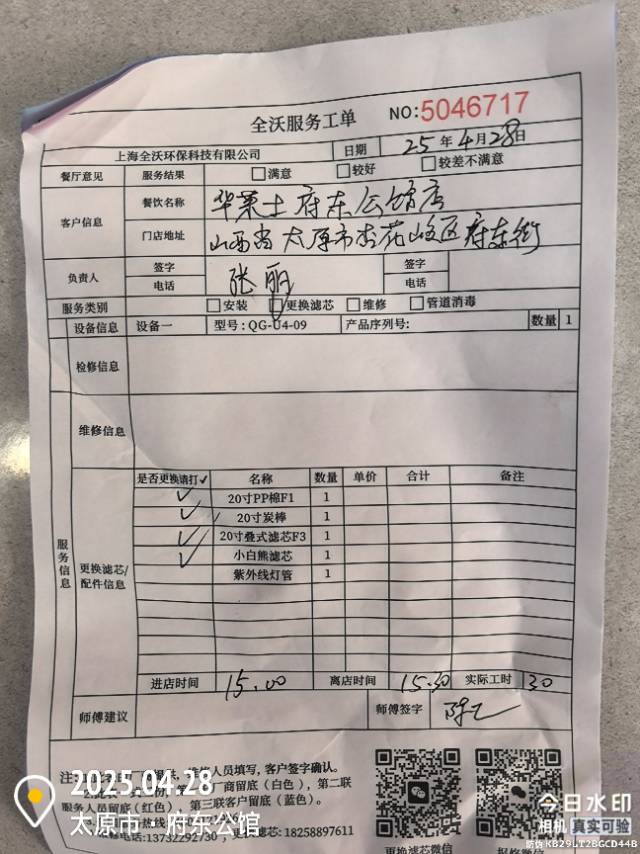 全沃服务工单 NO:5046717
上海全沃环保科技有限公司 日期 25年4月28日
餐厅意见 服务结果 □满意 □较好 □较差不满意
客户信息 餐饮名称 华莱士府东公馆店
门店地址 山西省太原市杏花岭区府东街
负责人 签字 张丽 签字
电话 电话
服务类别 □安装 □更换滤芯 □维修 □管道消毒
设备信息 设备一 型号:QG-U4-09 产品序列号: 数量 1
检修信息
维修信息
服务信息
更换滤芯/配件信息
是否更换请打✓ 名称 数量 单价 合计 备注
✓ 20寸PP棉F1 1
✓ 20寸炭棒 1
✓ 20寸叠式滤芯F3 1
✓ 小白熊滤芯 1
紫外线灯管 1
进店时间 15.00 离店时间 15.30 实际工时 30
师傅建议 师傅签字
人员填写,客户签字确认。
厂商留底(白色),第二联
服务人员留底(红色),第三联客户留底(蓝色)。
热线:13732292730 滤芯:18258897611
更换滤芯微信 报修微信
2025.04.28
太原市·府东公馆
今日水印
相机 真实可验
防伪 KB29LT2BGCD44B